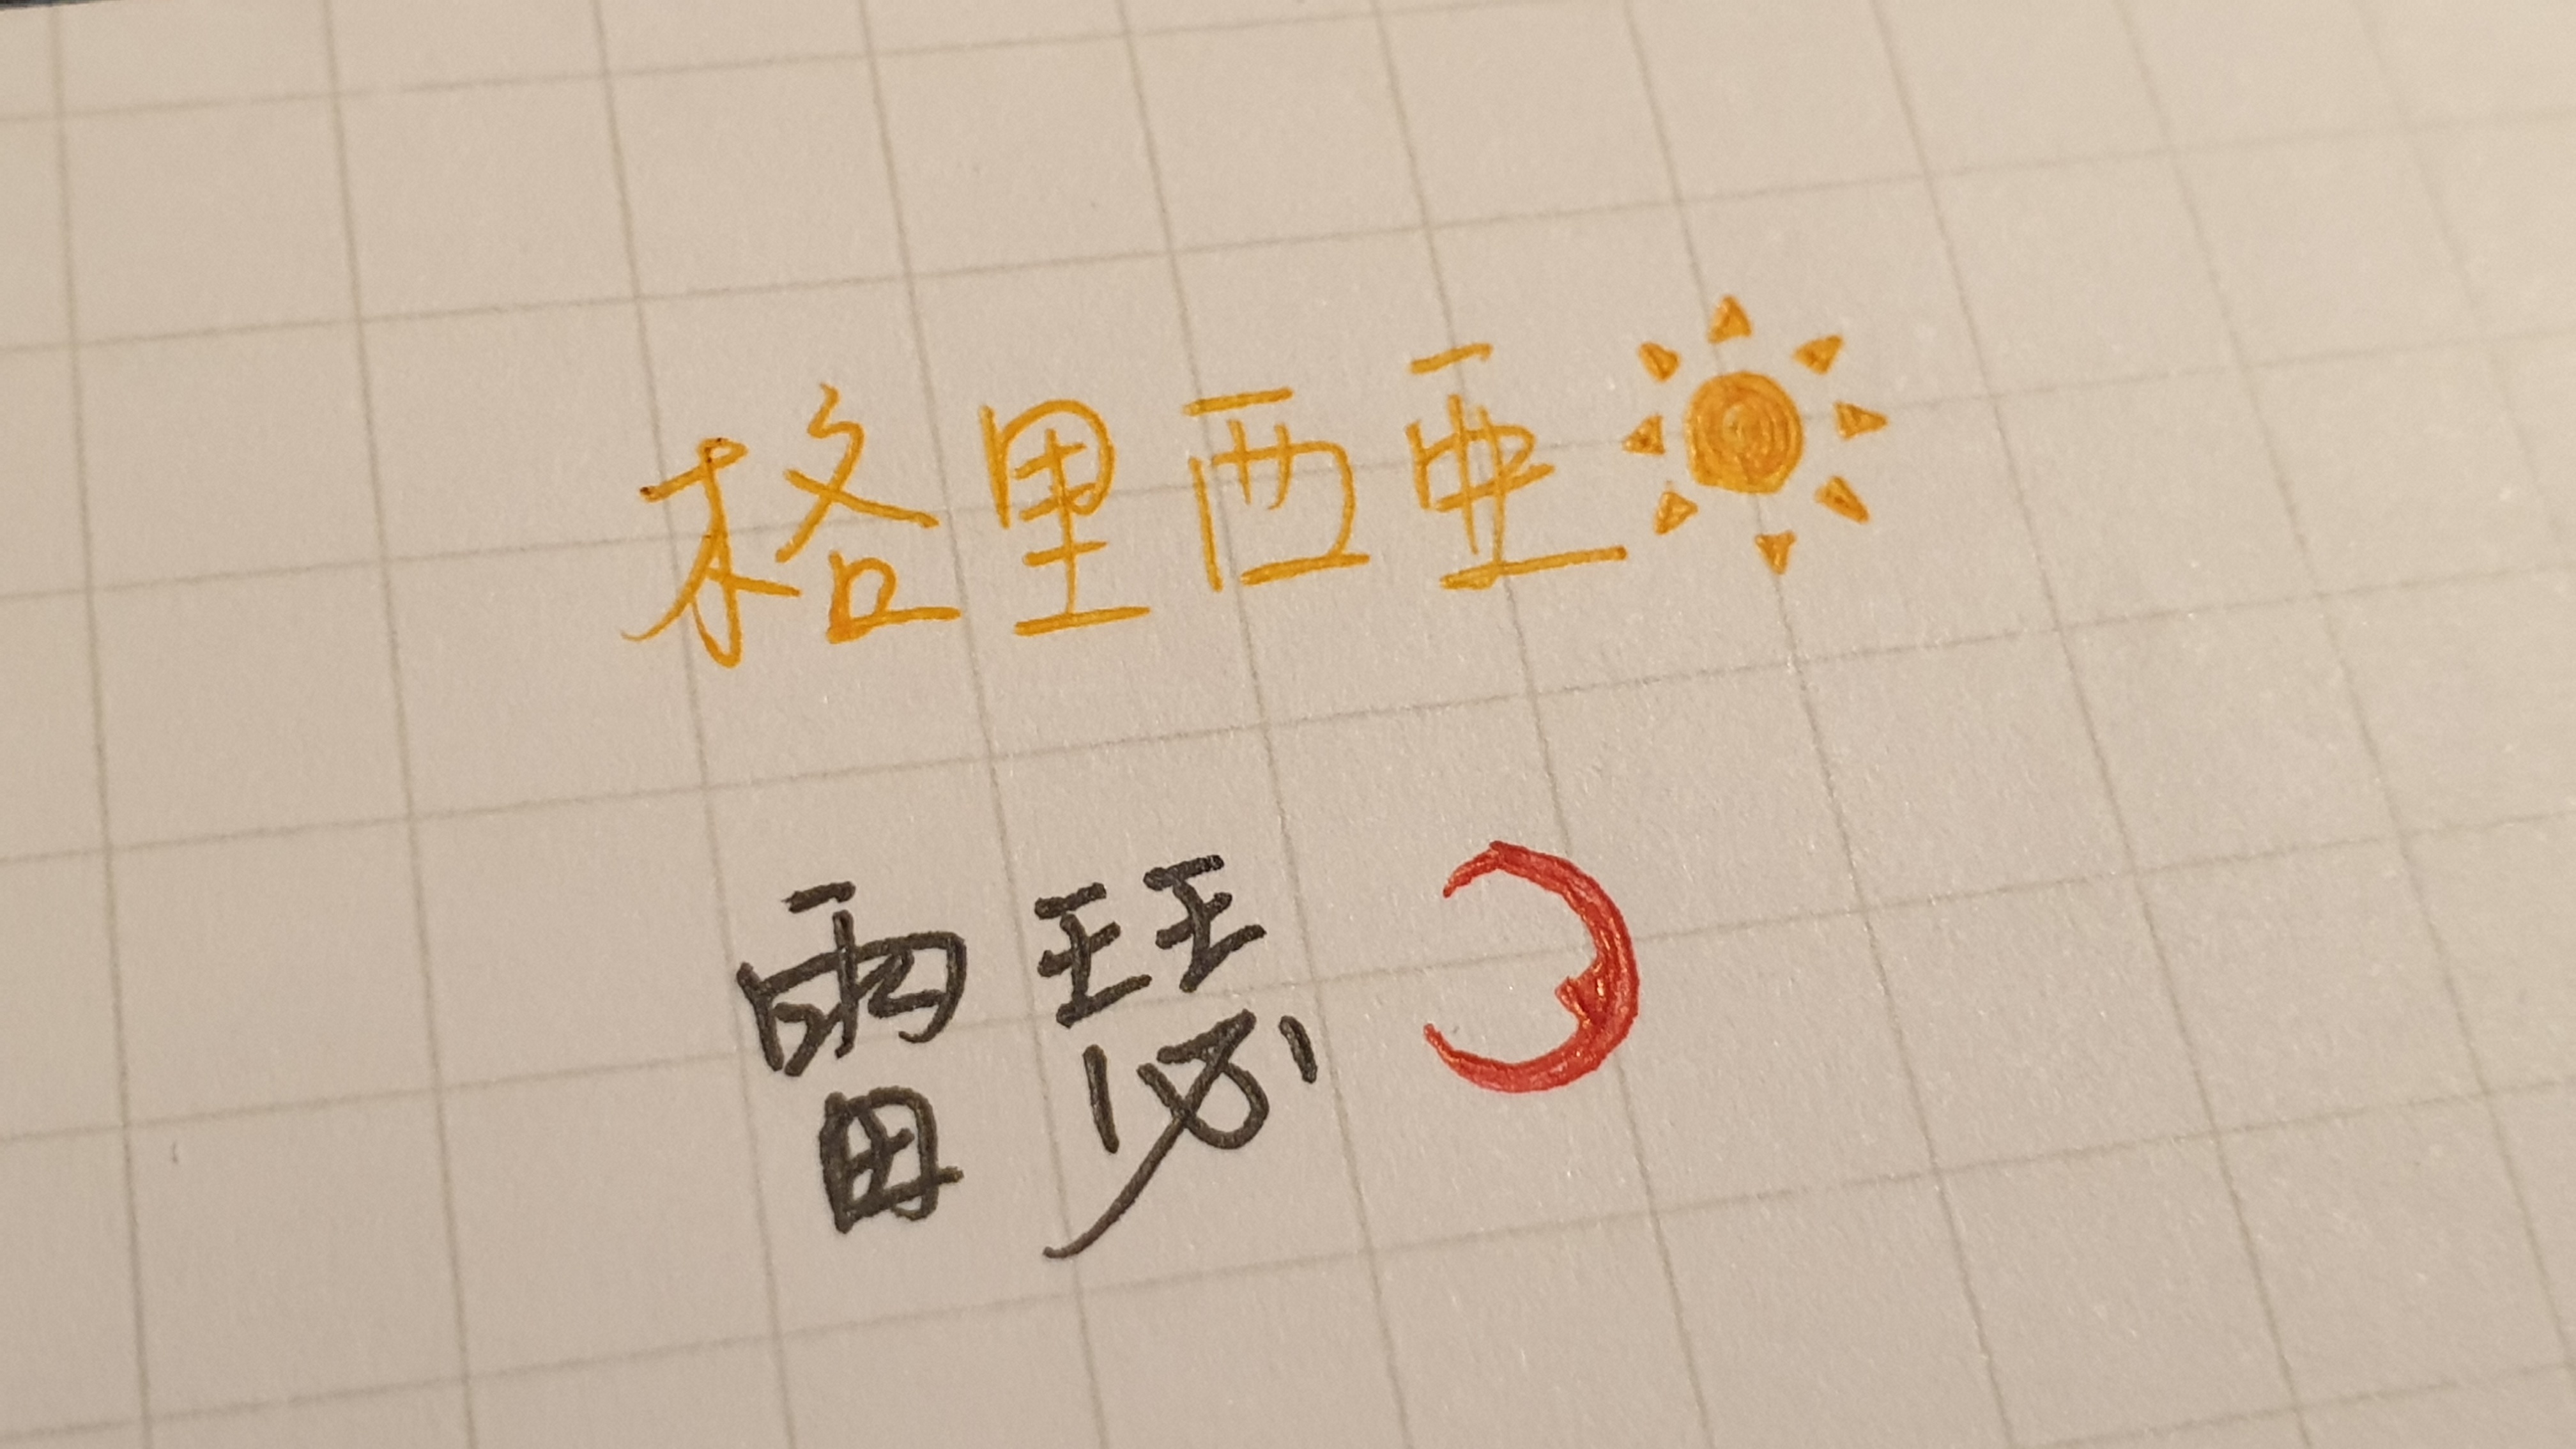 格里西亞
雷瑟